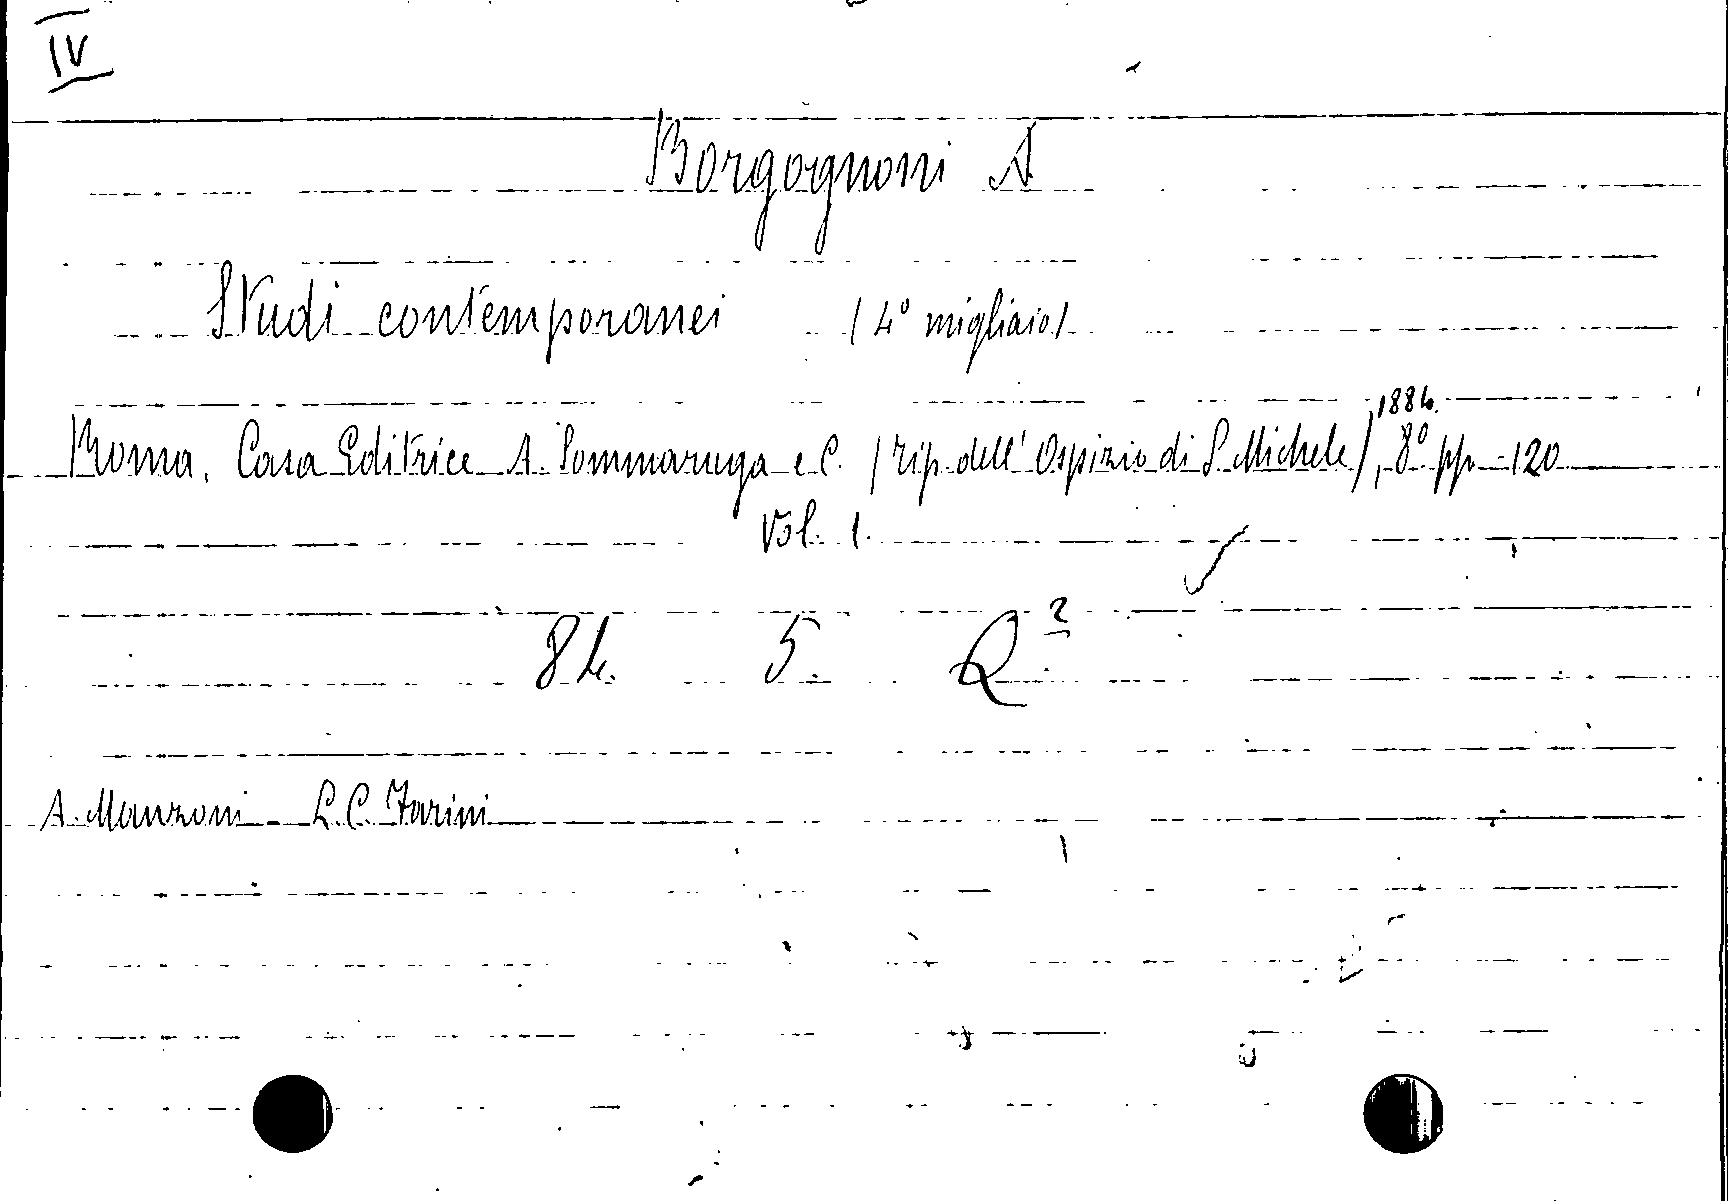 IV
Borgognoni A
Studi contemporanei (4° migliaio)
Roma. Casa Editrice A. Sommaruga e C. (Tip. dell' Ospizio di S. Michele), 1884. 8° pp. 120
Vol. 1.
84. 5. Q²
A. Manzoni - L. C. Farini